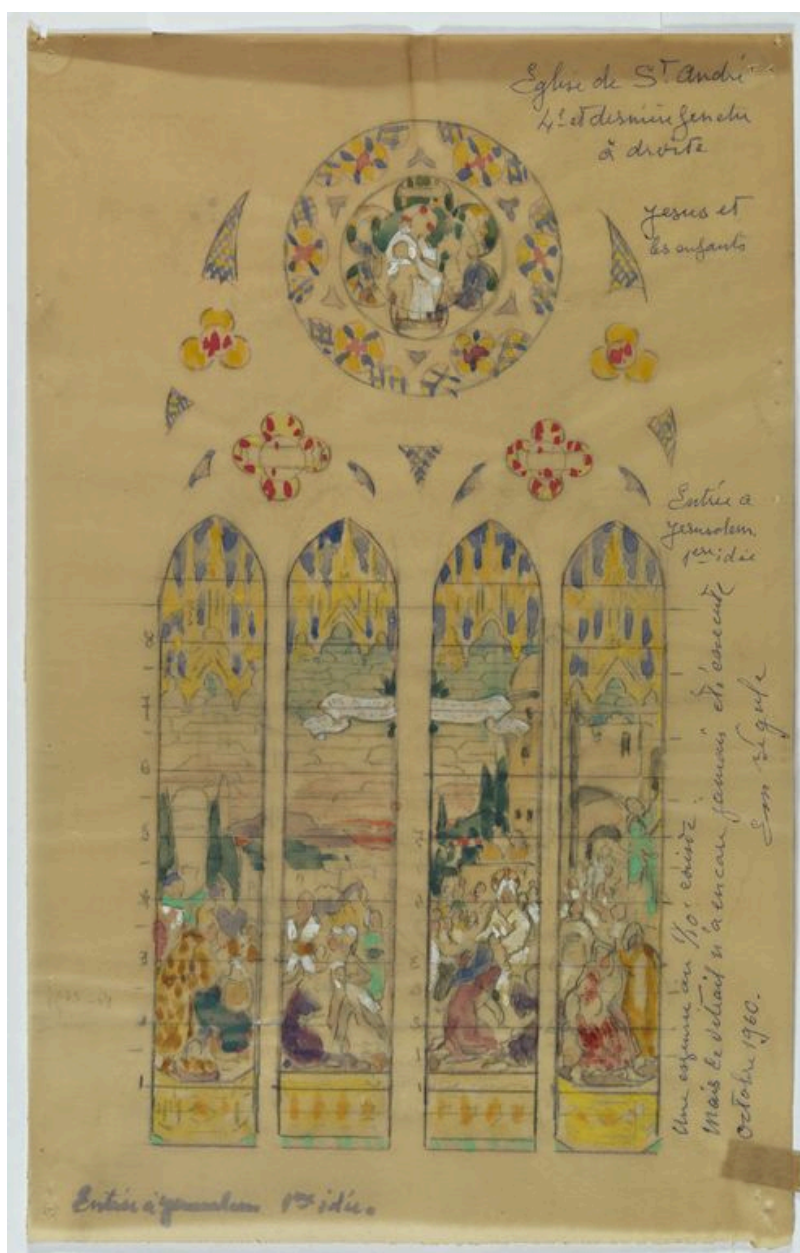 Eglise de St André
4e et dernière fenetre
à droite
Jesus et
les enfants
Entrée a
Jerusalem
1ere idée
Une esquisse au 1/10e existe
Mais le vitrail n'a encore jamais été executé
octobre 1960.
Entrée à Jerusalem 1ere idée.